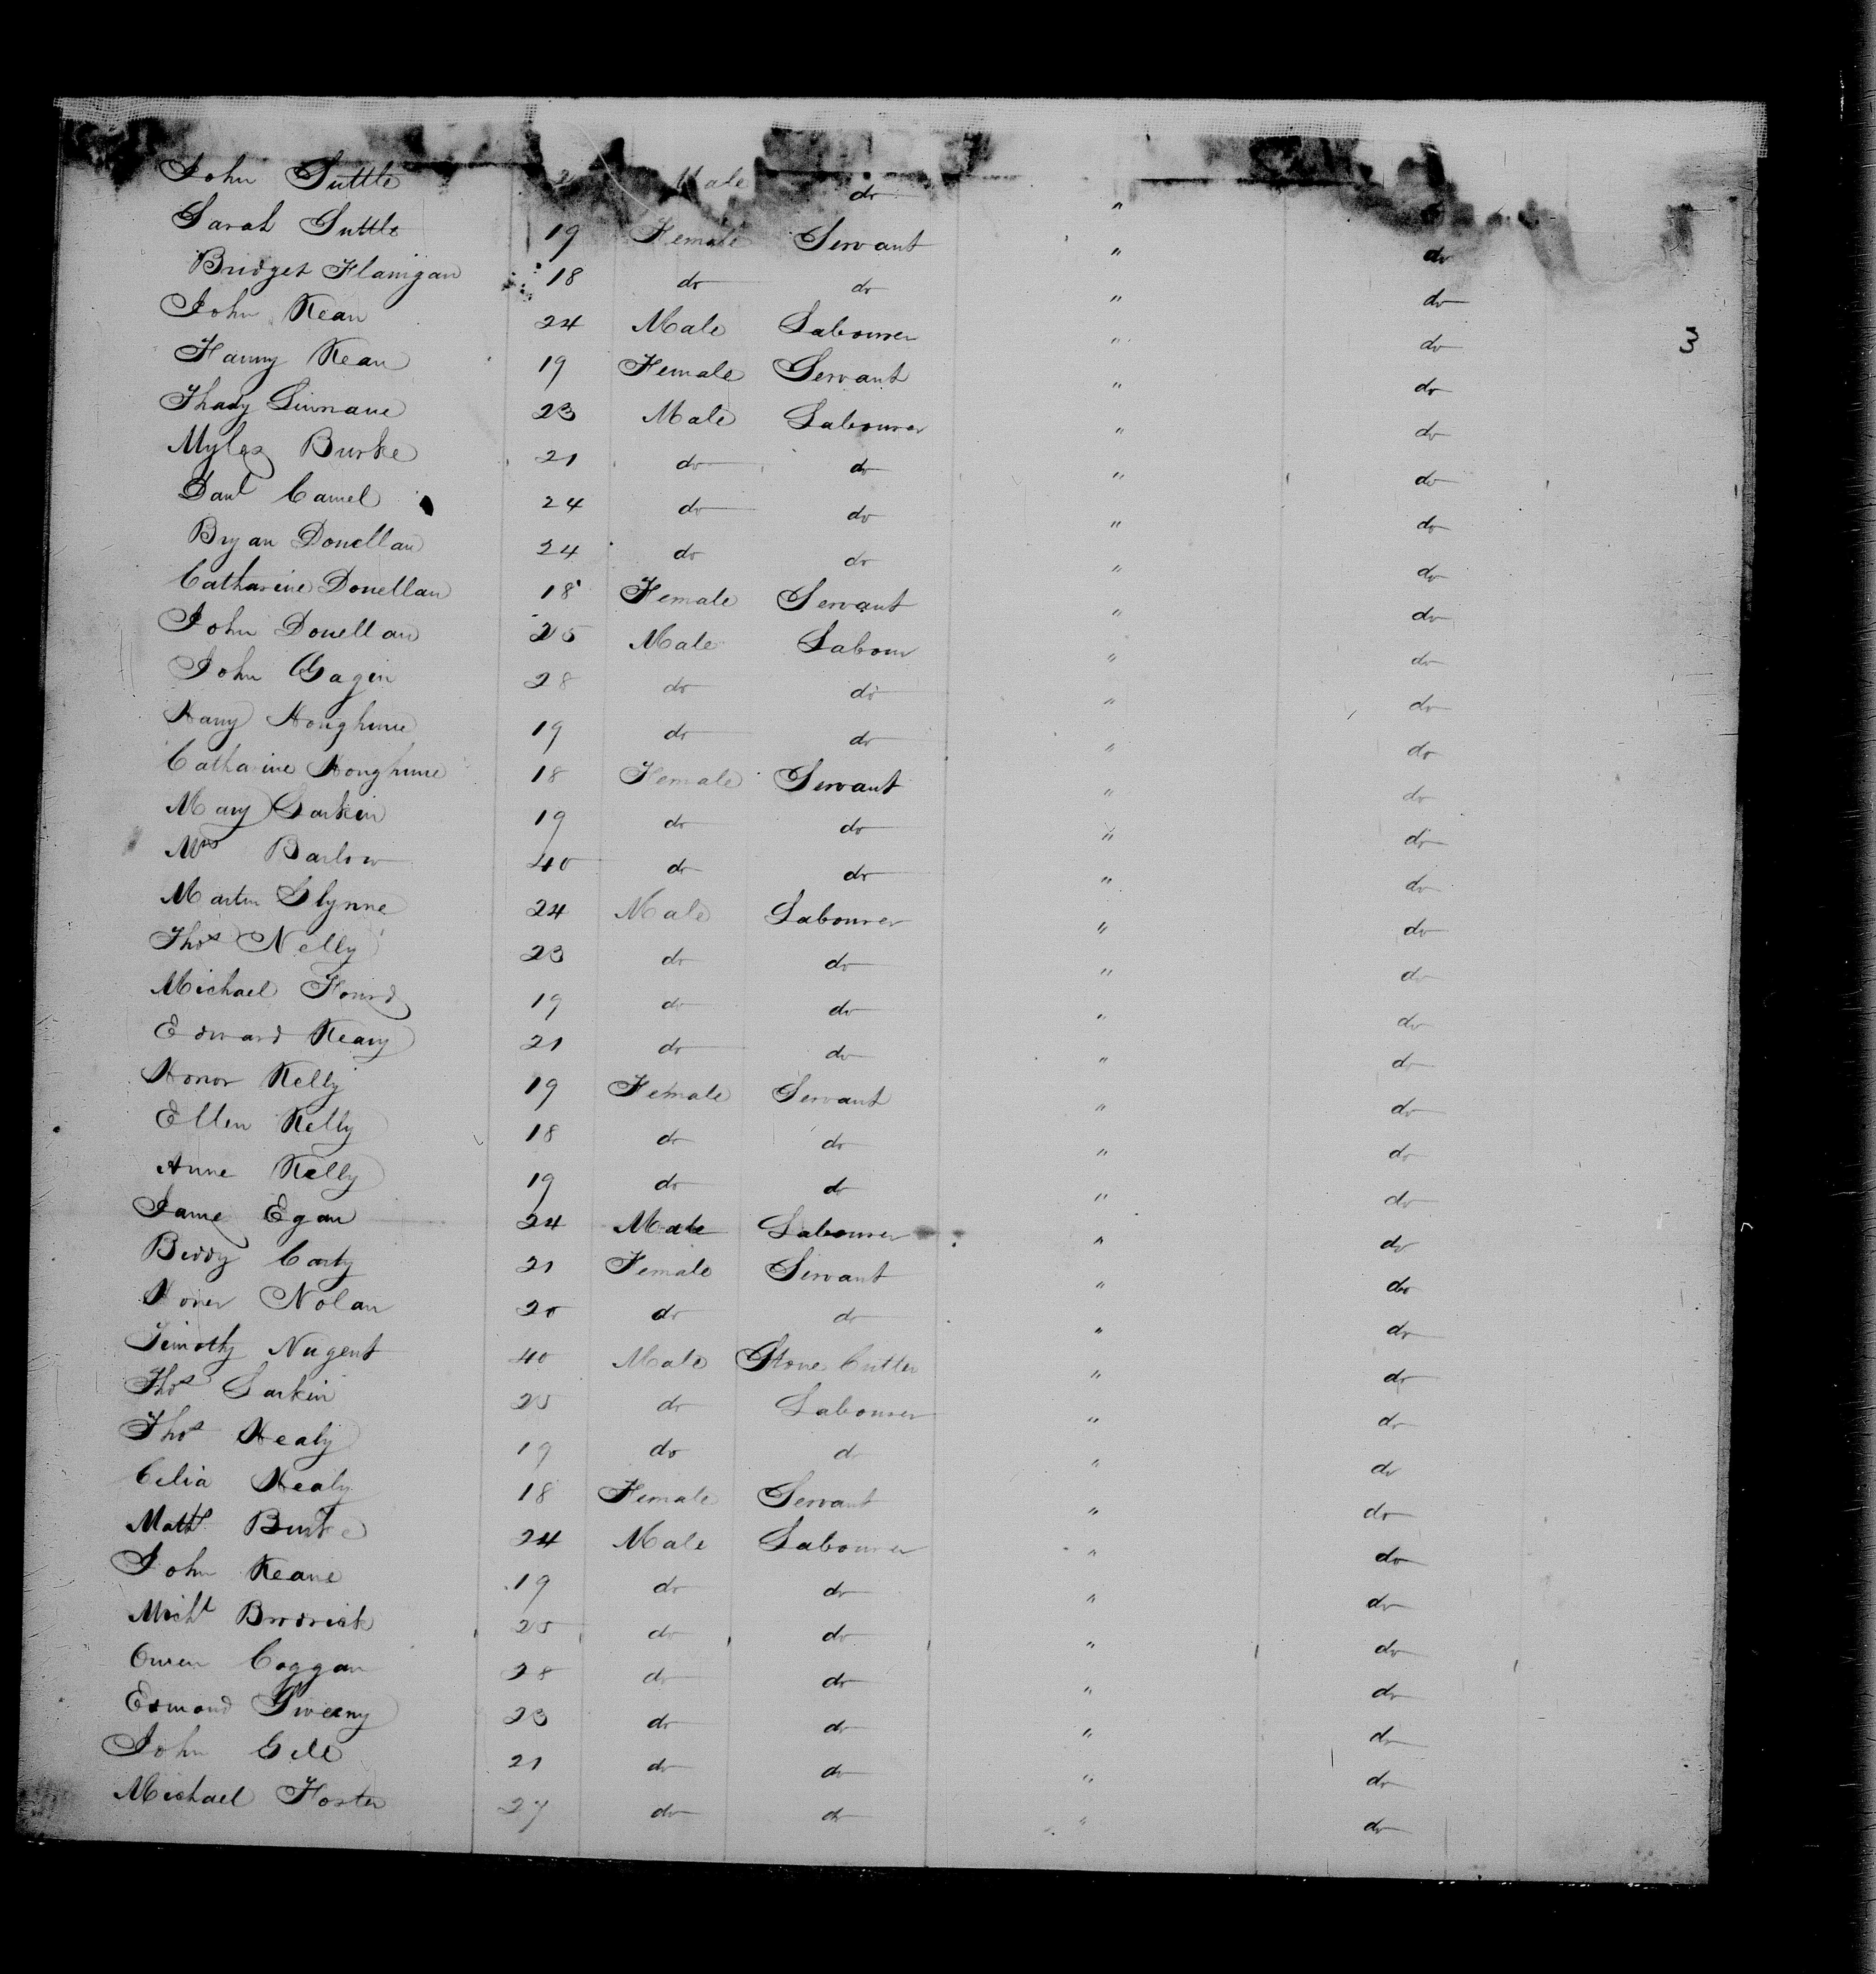 John Suttle 2 Male do " do
Sarah Suttle 19 Female Servant " do
Bridget Flanigan 18 do do " do
John Kean 24 Male Labourer " do
3
Fanny Kean 19 Female Servant " do
Thady Linnane 23 Male Labourer " do
Myles Burke 21 do do " do
Danl Camel 24 do do " do
Bryan Donellan 24 do do " do
Catharine Donellan 18 Female Servant " do
John Donellan 25 Male Labour " do
John Gagin 28 do do " do
Honghine 19 do do " do
Catharine Honghine 18 Female Servant " do
Mary Larkin 19 do do " do
Mrs Barlow 40 do do " do
Martin Glynne 24 Male Labourer " do
Thos Nelly 23 do do " do
Michael 19 do do " do
Edward Keary 21 do do " do
Honor Kelly 19 Female Servant " do
Ellen Kelly 18 do do " do
Anne Kelly 19 do do " do
Jame Egan 24 Male Labourer " do
Biddy Carty 21 Female Servant " do
Honer Nolan 20 do do " do
Timothy Nugent 40 Male Stone Cutter " do
Thos Larkin 25 do Labourer " do
Thos Healy 19 do do " do
Celia Healy 18 Female Servant " do
Matt Burke 24 Male Labourer " do
John Keane 19 do do " do
Michl Brodrick 25 do do " do
Owen Coggan 28 do do " do
Edmond Sweeny 23 do do " do
John Gill 21 do do " do
Michael Foster 27 do do " do